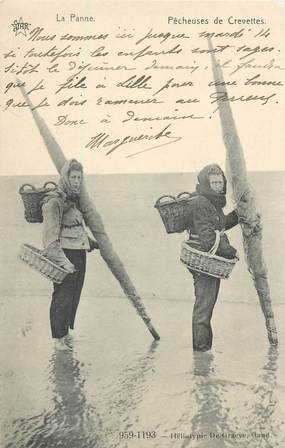 STAR
La Panne.
Pêcheuses de Crevettes.
Nous sommes ici jusque mardi 14
si toutefois les enfants sont sages.
Sitôt le déjeuner demain, il faudra
que je file à Lille pour une bonne
que je dois ramener au
Donc à demain!
Marguerite
959-1193 - Héliotypie De Graeve, Gand.